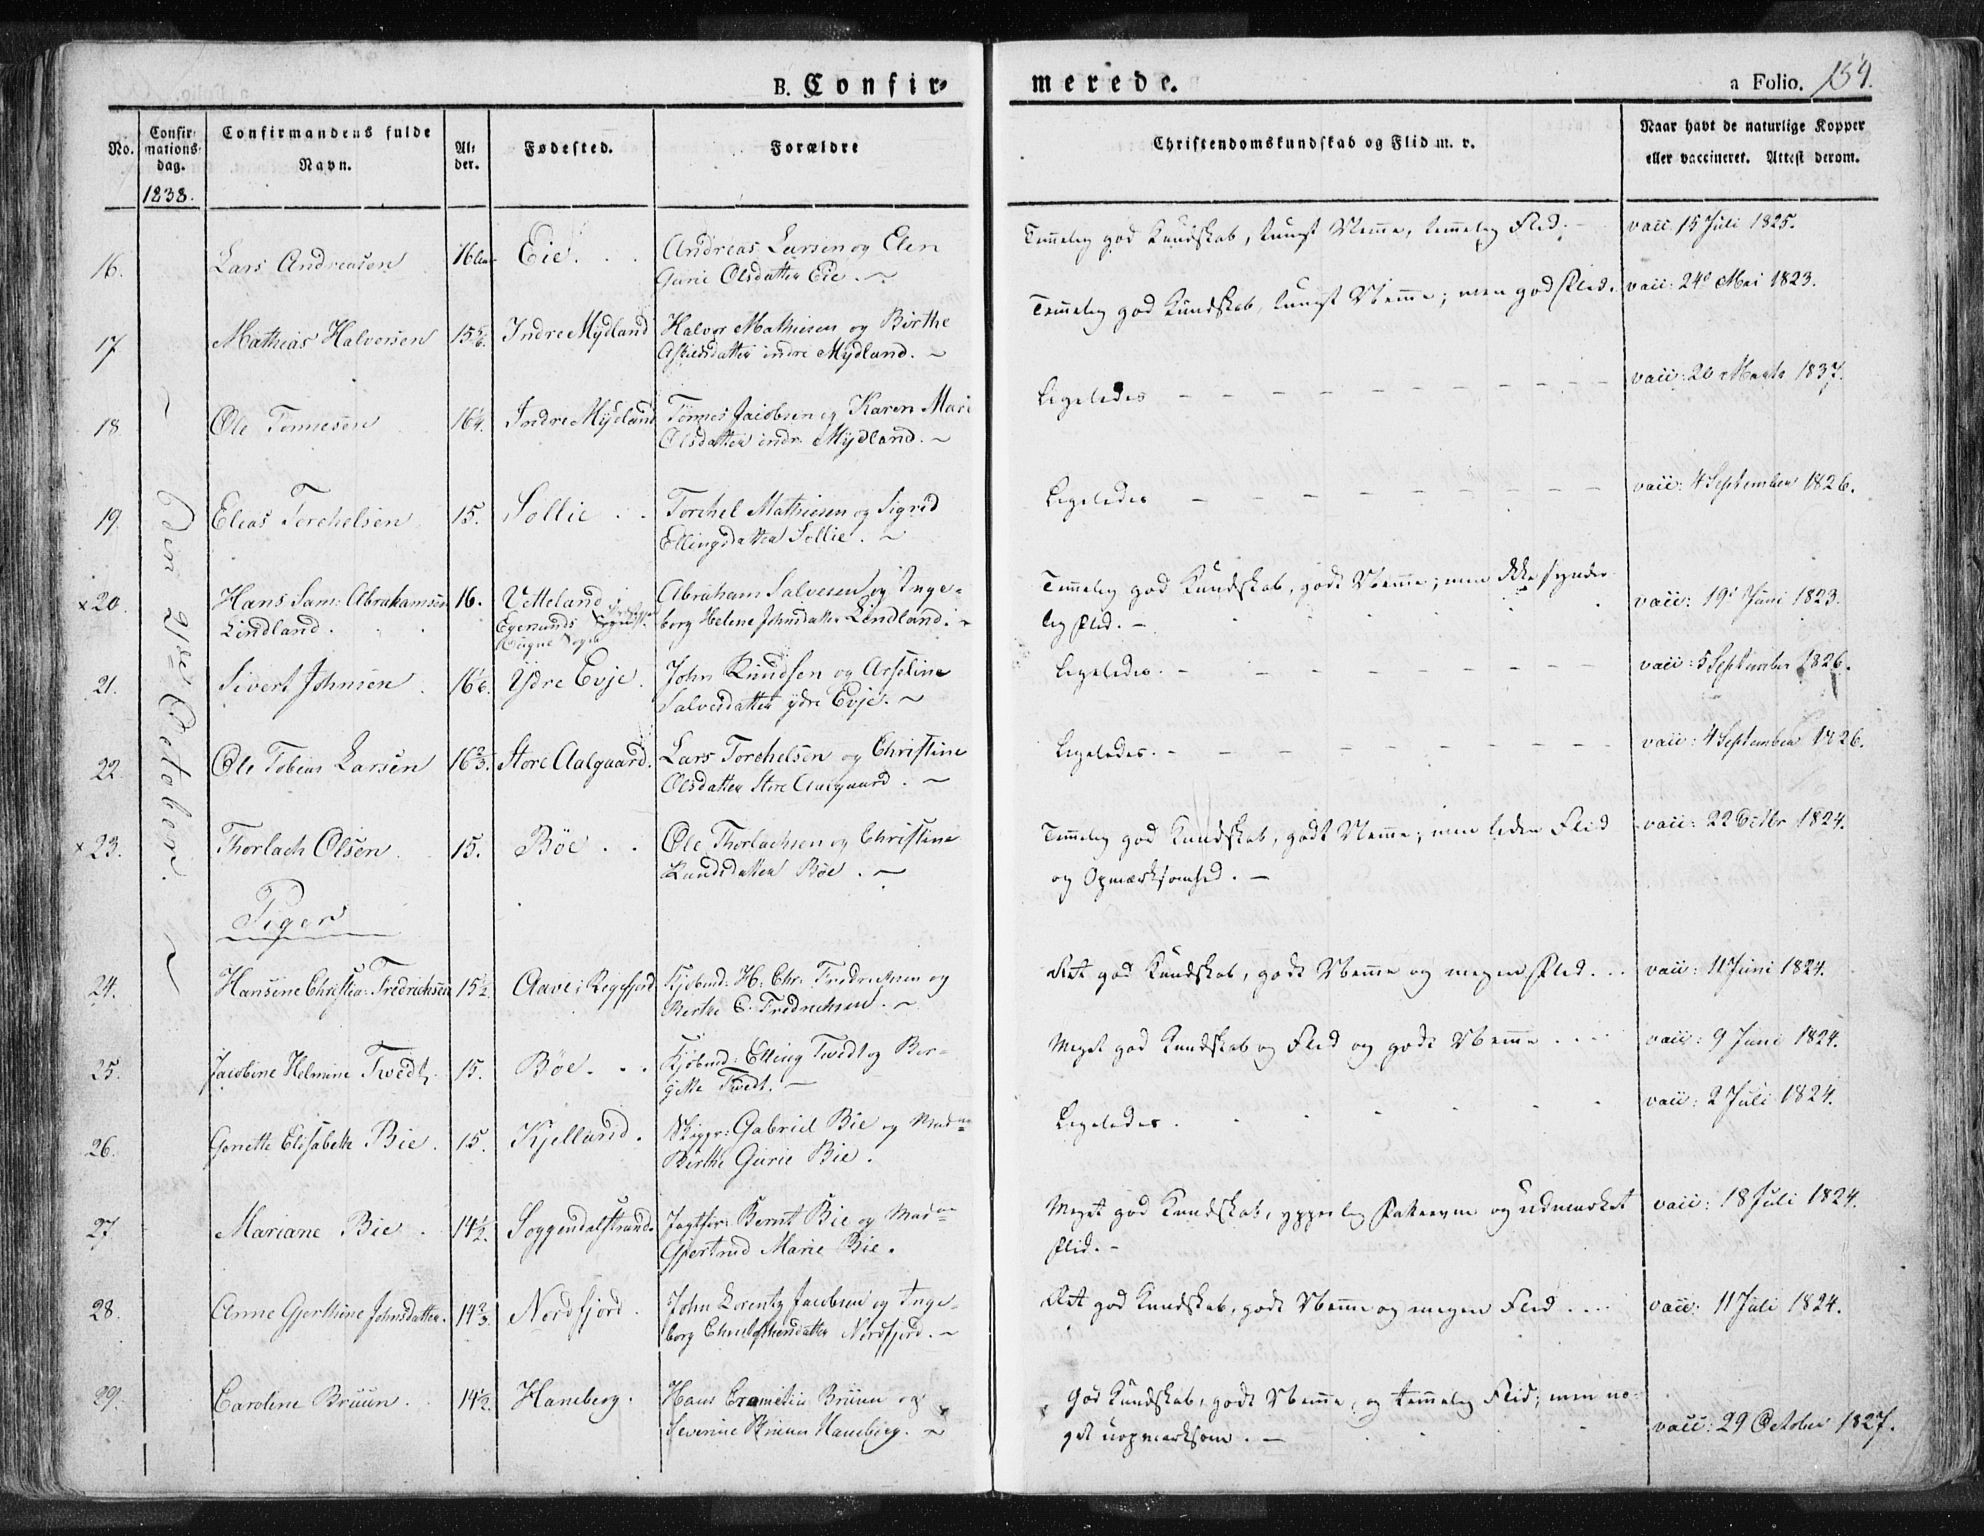 B. Confir-
merede.
a Folio. 154.
No.
Confir-
mations-
dag.
1838.
Confirmandens fulde
Navn.
Al-
der.
Fødested.
Forældre
Christendomskundskab og Flid m. v.
Naar havt de naturlige Kopper
eller vaccineret. Attest derom.
Den October.
16. Lars Andreasen 16 Eie. Andreas Larsen og Elen
Gurie Olsdatter Eie.
Temmelig god Kundskab, tungt Nemme, temmelig Flid. vacc. 15 Juli 1825.
17 Mathias Halvorsen 15 5/6. Indre Mydland Halvor Mathiesen og Birthe
Aslesdatter indre Mydland.
Temmelig god Kundskab, tungt Nemme; men god Flid. vacc: 24de Mai 1823.
18 Ole Tønnesen 16 1/4. Indre Mydland Tønnes Jacobsen og Karen Mari
Olsdatter indr. Mydland.
Ligeledes vacc: 20 Marts 1837.
19. Elias Torchelsen 15. Sollie Torchel Mathiesen og Sigrid
Ellingsdatter Sollie.
Ligeledes vacc: 4 September 1826.
×20. Hans Sam: Abrahamsen 16. Vetteland i Abraham Salvesen og Inge-
Lindland. Egersunds borg Helene Johnsdatter Lindland.
Sogn
Temmelig god Kundskab, godt Nemme; men ikke synder-
lig Flid. vacc: 19de Juni 1823.
21. Sivert Johnsen 16 1/6. Ydre Evje. John Knudsen og Asseline
Salvesdatter ydre Evje.
Ligeledes. vacc: 5 September 1826.
22. Ole Tobias Larsen 16 2/3. Store Aalgaard. Lars Torchelsen og Christine
Olsdatter Store Aalgaard.
Ligeledes. vacc: 4 September 1826.
×23. Thorlach Olsen 15. Böe Ole Thorlachsen og Christine
Knudsdatter Böe.
Temmelig god Kundskab, godt Nemme; men liden Flid
og Opmærksomhed. vacc: 22 Octbr 1824.
Piger
24. Hansine Christia: Fredrichsen 15 1/2. Aave i Regefjord Kjöbmd: H: Chr: Fredrichsen og
Berthe C. Fredrichsen.
Ret god Kundskab, godt Nemme og megen Flid. vacc: 11 Juni 1824.
25. Jacobine Helmine Tvedt, 15. Böe. Kjöbmd: Elling Tvedt og Ber-
gitte Tvedt.
Meget god Kundskab og Flid og godt Nemme vacc: 9 Juni 1824.
26. Gonette Elisabeth Bie. 15. Kjelland. Skippr: Gabriel Bie og Mad
Birthe Gurie Bie.
Ligeledes. vacc: 2 Juli 1824.
27. Mariane Bie. 14 1/2. Soggendalstrand. Jagtfør: Bernt Bie og Mad
Gjertrud Marie Bie.
Meget god Kundskab, ypperlig Fatteevne og udmærket
Flid. vacc: 18 Juli 1824.
28. Anne Gjerthine Johnsdatter. 14 2/3. Nordfjord. John Lorentz Jacobsen og Inge-
borg Christophersdatter Nordfjord.
Ret god Kundskab, godt Nemme og megen Flid vacc: 11 Juli 1824.
29. Caroline Bruun. 14 1/2. Haneberg. Hans Bruun og
Severine Bruun Haneberg.
God Kundskab, godt Nemme, og temmelig Flid; men no-
get uopmærksom. vacc: 29 October 1827.